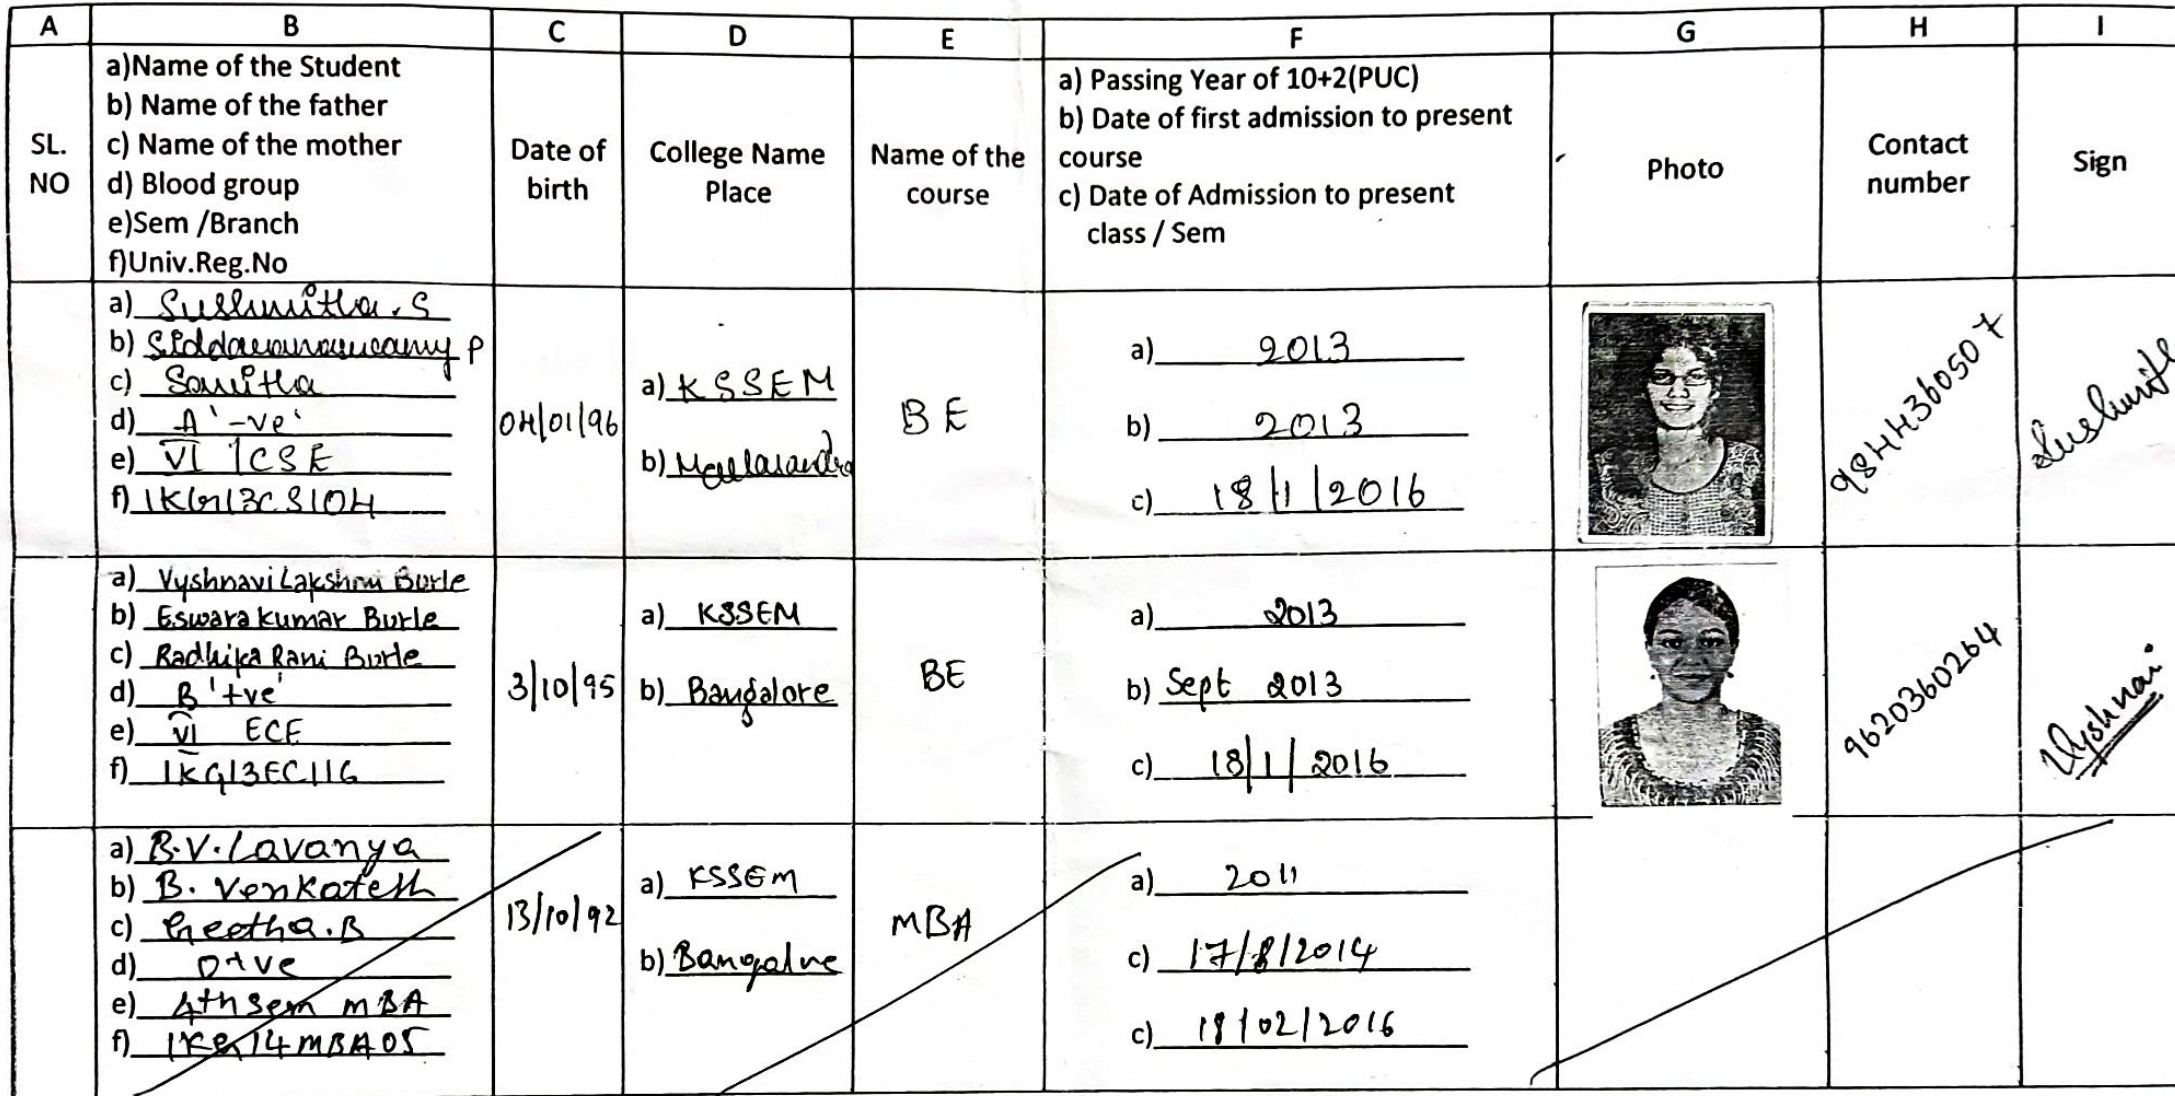 A B C D E F G H I
SL. NO
a)Name of the Student
b) Name of the father
c) Name of the mother
d) Blood group
e)Sem /Branch
f)Univ.Reg.No
Date of birth
College Name
Place
Name of the course
a) Passing Year of 10+2(PUC)
b) Date of first admission to present
course
c) Date of Admission to present
class / Sem
Photo
Contact number
Sign
a) Sushmitha.S
b) P
c) Samitha
d) A '-ve'
e) VI / CSE
f) 1KG13CS104
04/01/96
a) KSSEM
b) Mallasandra
BE
a) 2013
b) 2013
c) 18/1/2016
9844360507
Sushmitha
a) Vyshnavi Lakshmi Burle
b) Eswara kumar Burle
c) Radhika Rani Burle
d) B '+ve'
e) VI ECE
f) 1KG13EC116
3/10/95
a) KSSEM
b) Bangalore
BE
a) 2013
b) Sept 2013
c) 18/1/2016
9620360264
Vyshnavi
a) B.V.Lavanya
b) B. Venkatesh
c) Geetha.B
d) O+ve
e) 4th sem MBA
f) 1KG14MBA05
13/10/92
a) KSSEM
b) Bangalore
MBA
a) 2011
c) 17/8/2014
c) 18/02/2016